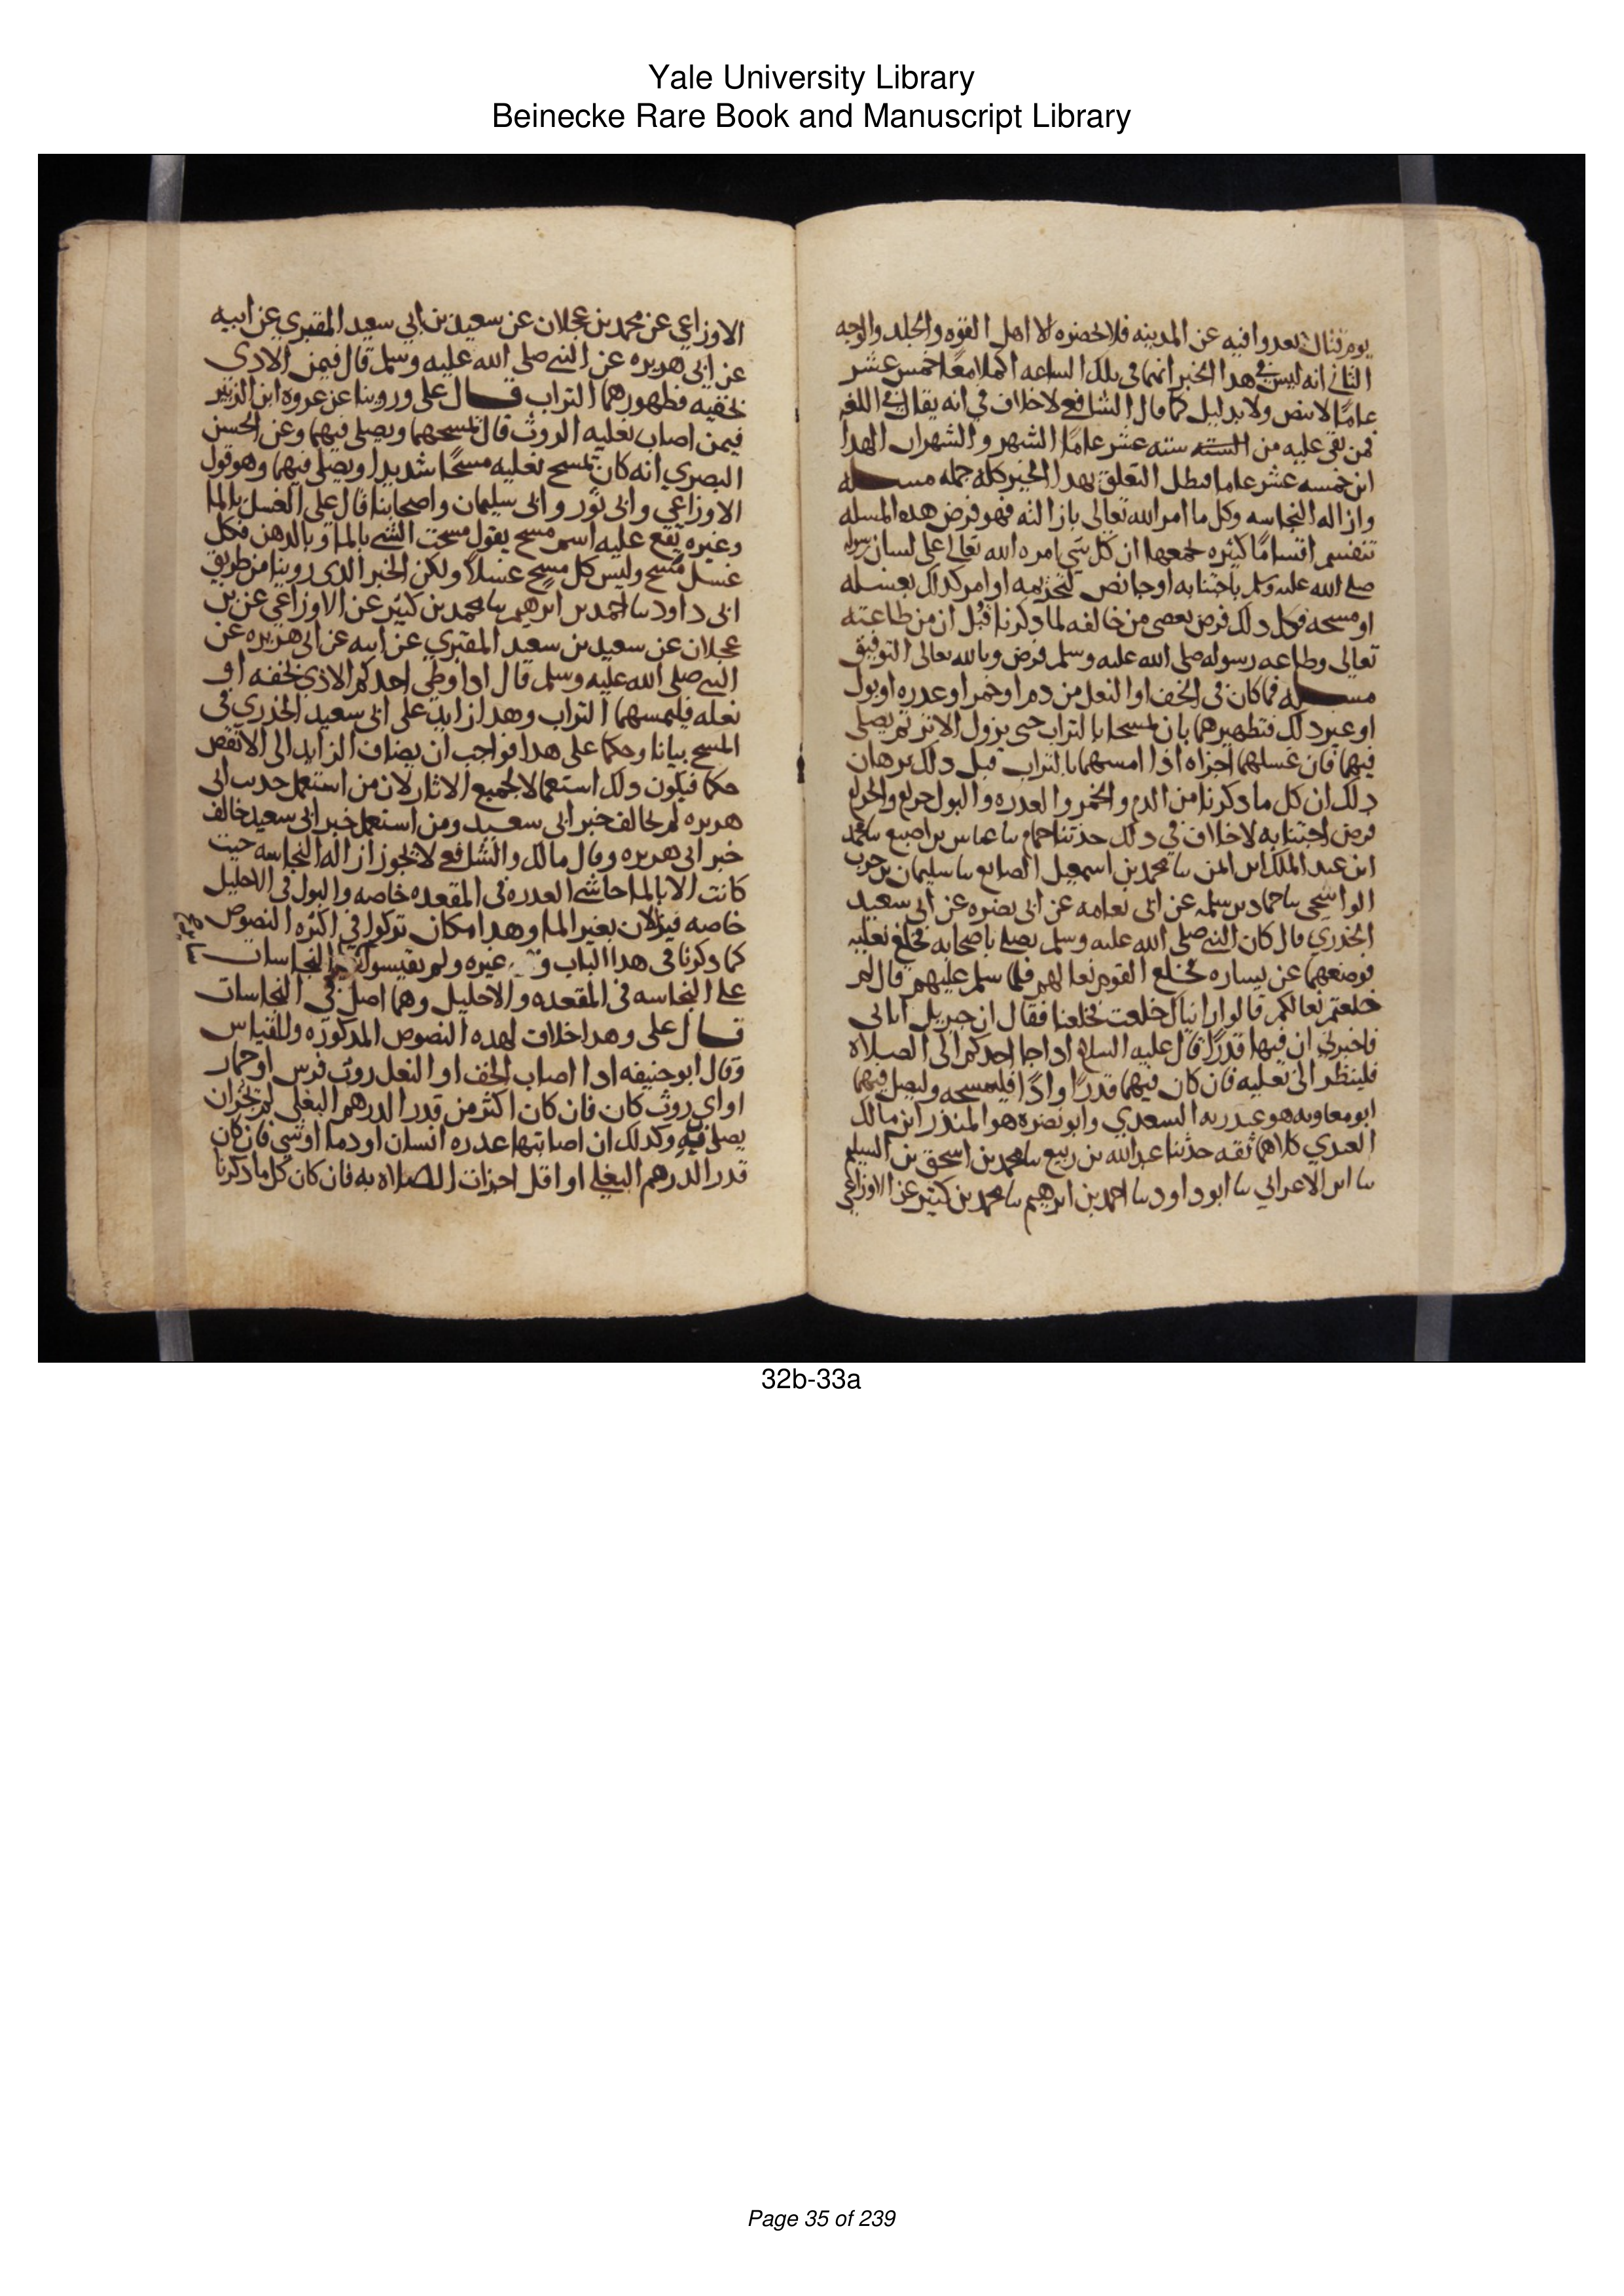 Yale University Library
Beinecke Rare Book and Manuscript Library
يوم قتال بعدوا فيه عن المدينه فلا يحضره الا اهل القوه والجلد والوجه
الثاني انه ليس في هدا الخبر انهما في تلك الساعه اكملا معًا خمس عشر
عامًا لا بنص ولا بدليل كما قال الشافعي لا خلاف في انه يقال في اللغه
فمن بقي عليه من الستة سته عشر عامًا الشهر والشهران لهدا
ابن خمسه عشر عاما فبطل التعلق بهدا الخبر كله جمله مسله
وازاله النجاسه وكل ما امر الله تعالى بازالته فهو فرض هده المسله
تنقسم اقسامًا كثيره يجمعها ان كل شي امره الله تعالى على لسان رسوله
صلى الله عليه وسلم باجتنابه او جا نص لتحريمه او امر كدلك بغسله
او مسحه فكل دلك فرض يعصي من خالفه لما دكرنا قبل ان من طاعته
تعالى وطاعه رسوله صلى الله عليه وسلم فرض وبالله تعالى التوفيق
مسله فما كان في الخف او النعل من دم او خمر او عدره او بول
او غير دلك فتطهيرهما بان تمسحا بالتراب حتى يزول الاثر ثم يصلى
فيهما فان غسلهما اجزاه اذا امسهما بالتراب قبل دلك برهان
دلك ان كل ما دكرنا من الدم والخمر والعدره والبول حرام والحرام
فرض اجتنابه لا خلاف في دلك حدثنا حمام سا عباس بن اصبغ سا محمد
ابن عبد الملك ابن ايمن سا محمد بن اسمعيل الصايغ سا سليمان بن حرب
الواشحي سا حماد بن سلمه عن ابي نعامه عن ابي نضره عن ابي سعيد
الخذري قال كان النبي صلى الله عليه وسلم يصلي باصحابه فخلع نعليه
فوضعهما عن يساره فخلع القوم نعالهم فلما سلم عليهم قال لم
خلعتم نعالكم قالوا راينياك خلعت فخلعنا فقال ان جبريل اتاني
فاخبرني ان فيهما قدرًا قال عليه السلام ادا جا احدكم الى الصلاة
فلينظر الى نعليه فان كان فيهما قدرًا او اذًا فليمسحه وليصل فيهما
ابو معاويه هو عبدربه السعدي وابو نضره هو المنذر ابن مالك
العبدي كلاهما ثقه حدثنا عبد الله بن ربيع سا محمد بن اسحق بن السليم
سا ابن الاعرابي سا ابو داود سا احمد بن ابرهيم سا محمد بن كثير عن الاوزاعي
الاوزاعي عن محمد بن عجلان عن سعيد بن ابي سعيد المقبري عن ابيه
عن ابي هريره عن النبي صلى الله عليه وسلم قال فيمن الادى
بخفيه فطهورهما التراب قال علي وروينا عن عروه ابن الزبير
فيمن اصاب نعليه الروث قال تمسحهما ويصلي فيهما وعن الحسن
البصري انه كان يمسح نعليه مسحًا شديدا ويصلي فيهما وهو قول
الاوزاعي وابي ثور وابي سليمان واصحابنا قال علي الغسل بالما
وغيره يقع عليه اسم مسح يقول مسحت الشي بالما وبالدهن فكل
غسل مسح وليس كل مسح غسلاً ولكن الخبر الدى روينا من طريق
ابي داود سا احمد بن ابرهيم سا محمد بن كثير عن الاوزاعي عن بن
عجلان عن سعيد بن سعيد المقبري عن ابيه عن ابي هريره عن
النبي صلى الله عليه وسلم قال ادا وطي احدكم الاذى بخفه او
نعله فليمسهما التراب وهدا زايد على ابي سعيد الخذري في
المسح بيانا وحكما على هدا فواجب ان يضاف الزايد الى الانقص
حكما فيكون دلك استعمالا لجميع الاثار لان من استعمل حديث ابي
هريره لم يخالف خبر ابي سعيد ومن استعمل خبر ابي سعيد خالف
خبر ابي هريره وقال مالك والشافعي لا تجوز ازاله النجاسه حيث
كانت الا بالما حاشى العدره في المقعده خاصه والبول في الاحليل
خاصه فيزالان بغير الما وهدا مكان تركوا في اكثره النصوص
كما دكرنا في هدا الباب و غيره ولم يقيسوا النجاسات
على النجاسه في المقعده والاحليل وهما اصل في النجاسات
قال علي وهدا خلاف لهده النصوص المدكوره وللقياس
وقال ابو حنيفه ادا اصاب الخف او النعل روث فرس او حمار
او اي روث كان فان كان اكثر من قدر الدرهم البغلي لم يجز ان
يصلى فيه وكدلك ان اصابتها عدره انسان او دما او شي فان كان
قدر الدرهم البغلي او اقل اجزات الصلاه به فان كان كل ما دكرنا
32b-33a
Page 35 of 239